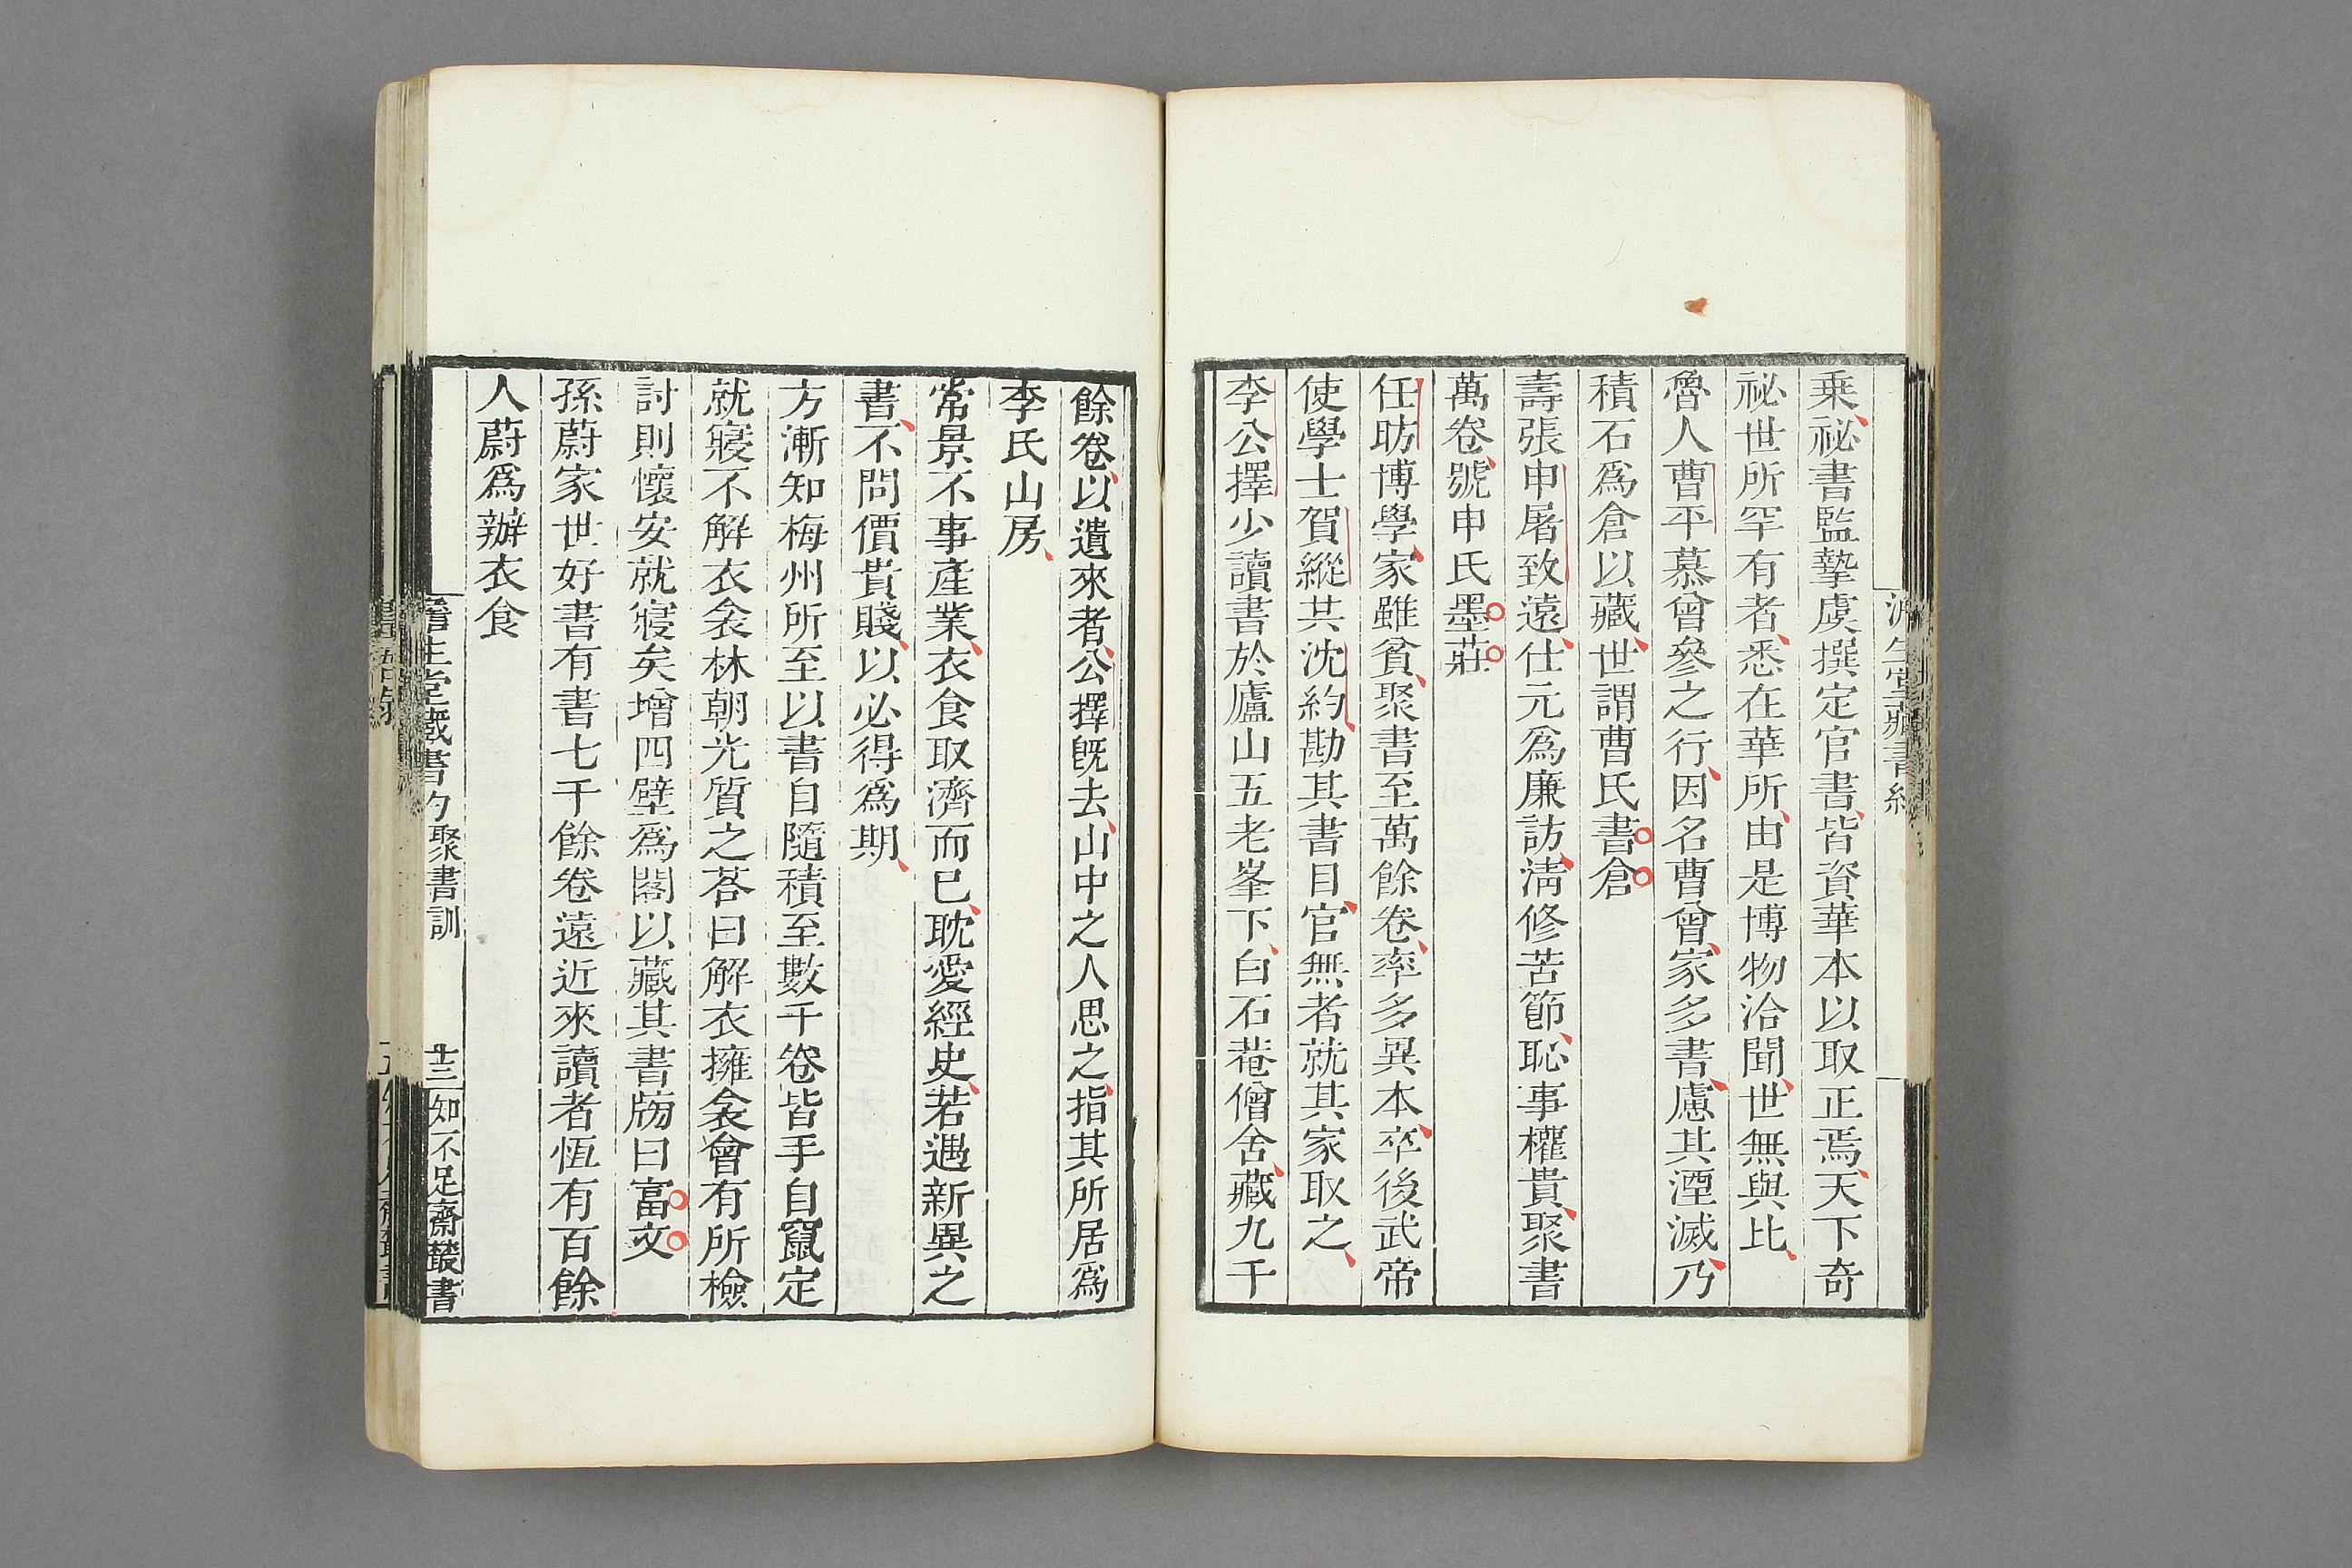 乗祕書監摯虞撰定官書皆資華本以取正焉天下奇
祕世所罕有者悉在華所由是博物洽聞世無與比
魯人曹平慕曾參之行因名曹曾家多書慮其湮滅乃
積石爲倉以藏世謂曹氏書倉
壽張申屠致遠仕元爲廉訪淸修苦節恥事權貴聚書
萬卷號申氏墨莊
任昉博學家雖貧聚書至萬餘卷率多異本卒後武帝
使學士賀縱共沈約勘其書目官無者就其家取之
李公擇少讀書於廬山五老峯下白石菴僧舍藏九千
餘卷以遺來者公擇旣去山中之人思之指其所居爲
李氏山房
常景不事產業衣食取濟而已耽愛經史若遇新異之
書不問價貴賤以必得爲期
方漸知梅州所至以書自隨積至數千卷皆手自竄定
就寢不解衣衾林朝光質之荅曰解衣擁衾會有所檢
討則懷安就寢矣增四壁爲閣以藏其書牓曰富文
孫蔚家世好書有書七千餘卷遠近來讀者恆有百餘
人蔚爲辦衣食
生堂藏書約 聚書訓 十三 知不足齋叢書